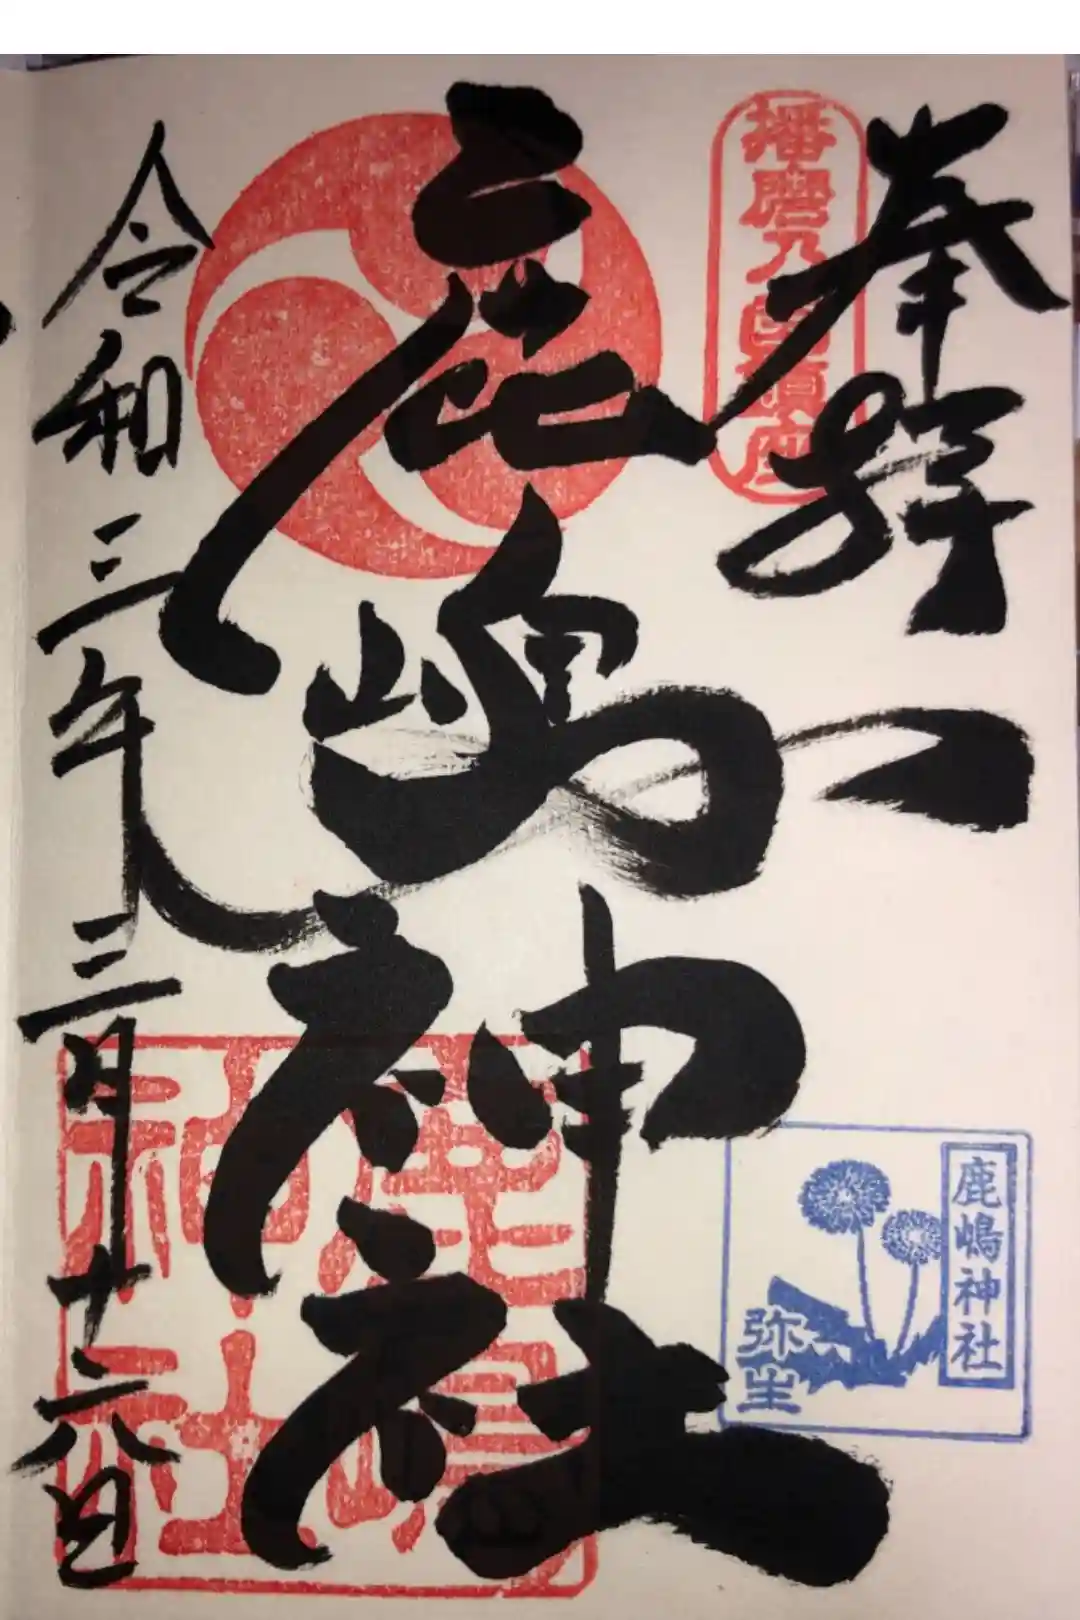 奉拝
播磨乃国
座
鹿嶋神社
令和三年三月十六日
鹿嶋神社
鹿嶋神社
弥生